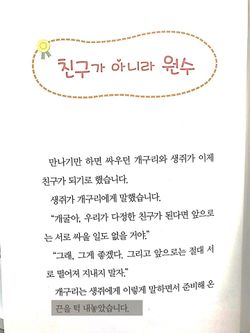 친구가 아니라 원수
만나기만 하면 싸우던 개구리와 생쥐가 이제
친구가 되기로 했습니다.
생쥐가 개구리에게 말했습니다.
“개굴아, 우리가 다정한 친구가 된다면 앞으로
는 서로 싸울 일도 없을 거야.”
“그래, 그게 좋겠다. 그리고 앞으로는 절대 서
로 떨어져 지내지 말자.”
개구리는 생쥐에게 이렇게 말하면서 준비해 온
끈을 턱 내놓았습니다.